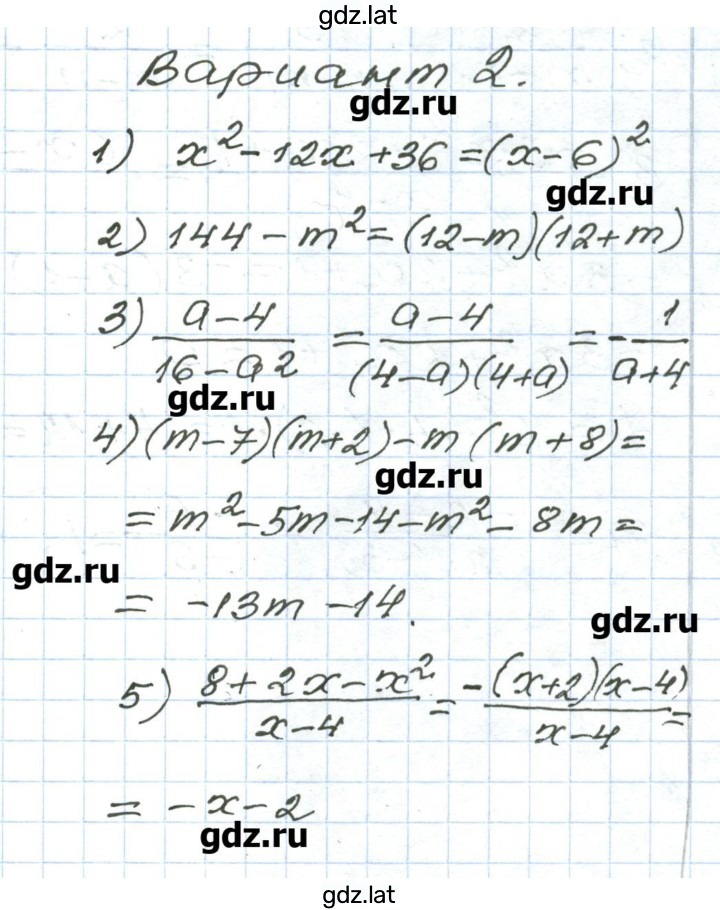 gdz.lat
Вариант 2.
gdz.ru
1) x² - 12x + 36 = (x - 6)²
gdz.ru
2) 144 - m² = (12 - m)(12 + m)
3) (a - 4)/(16 - a²) = (a - 4)/((4 - a)(4 + a)) = - 1/(a + 4)
gdz.ru
4) (m - 7)(m + 2) - m (m + 8) =
gdz.ru
= m² - 5m - 14 - m² - 8m =
gdz.ru
= -13m - 14.
gdz.ru
5) (8 + 2x - x²)/(x - 4) = (-(x + 2)(x - 4))/(x - 4) =
= -x - 2
gdz.ru
gdz.lat